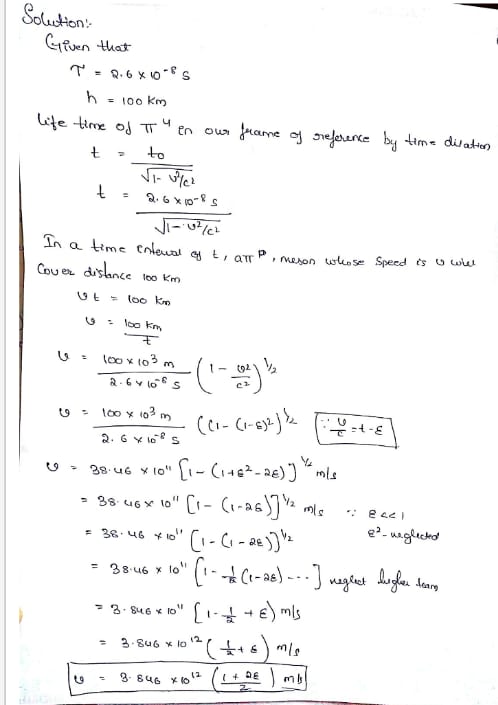 Solution:-
Given that
τ = 2.6 x 10⁻⁸ s
h = 100 Km
life time of π⁴ in our frame of reference by time dilation
t = to / √1- v²/c²
t = 2.6 x 10⁻⁸ s / √1- v²/c²
In a time interval of t, a π p, meson whose speed is v will
Cover distance 100 Km
vt = 100 Km
v = 100 Km / t
v = 100 x 10³ m / 2.6 x 10⁻⁸ s (1 - v²/c²)^1/2
v = 100 x 10³ m / 2.6 x 10⁻⁸ s ((1- (1-ε)²)^1/2 [∵ v/c = 1-ε]
v = 38.46 x 10¹¹ [1- (1+ε²-2ε)]^1/2 m/s
= 38.46 x 10¹¹ [1- (1-2ε)]^1/2 m/s ∵ ε<<1
= 38.46 x 10¹¹ [1- (1-2ε)]^1/2 ε²-neglected
= 38.46 x 10¹¹ [1- 1/2 (1-2ε) ---] neglect higher team
= 3.846 x 10¹¹ [1- 1/2 + ε) m/s
= 3.846 x 10¹² (1/2 + ε) m/s
v = 3.846 x 10¹² (1 + 2ε / 2) m/s